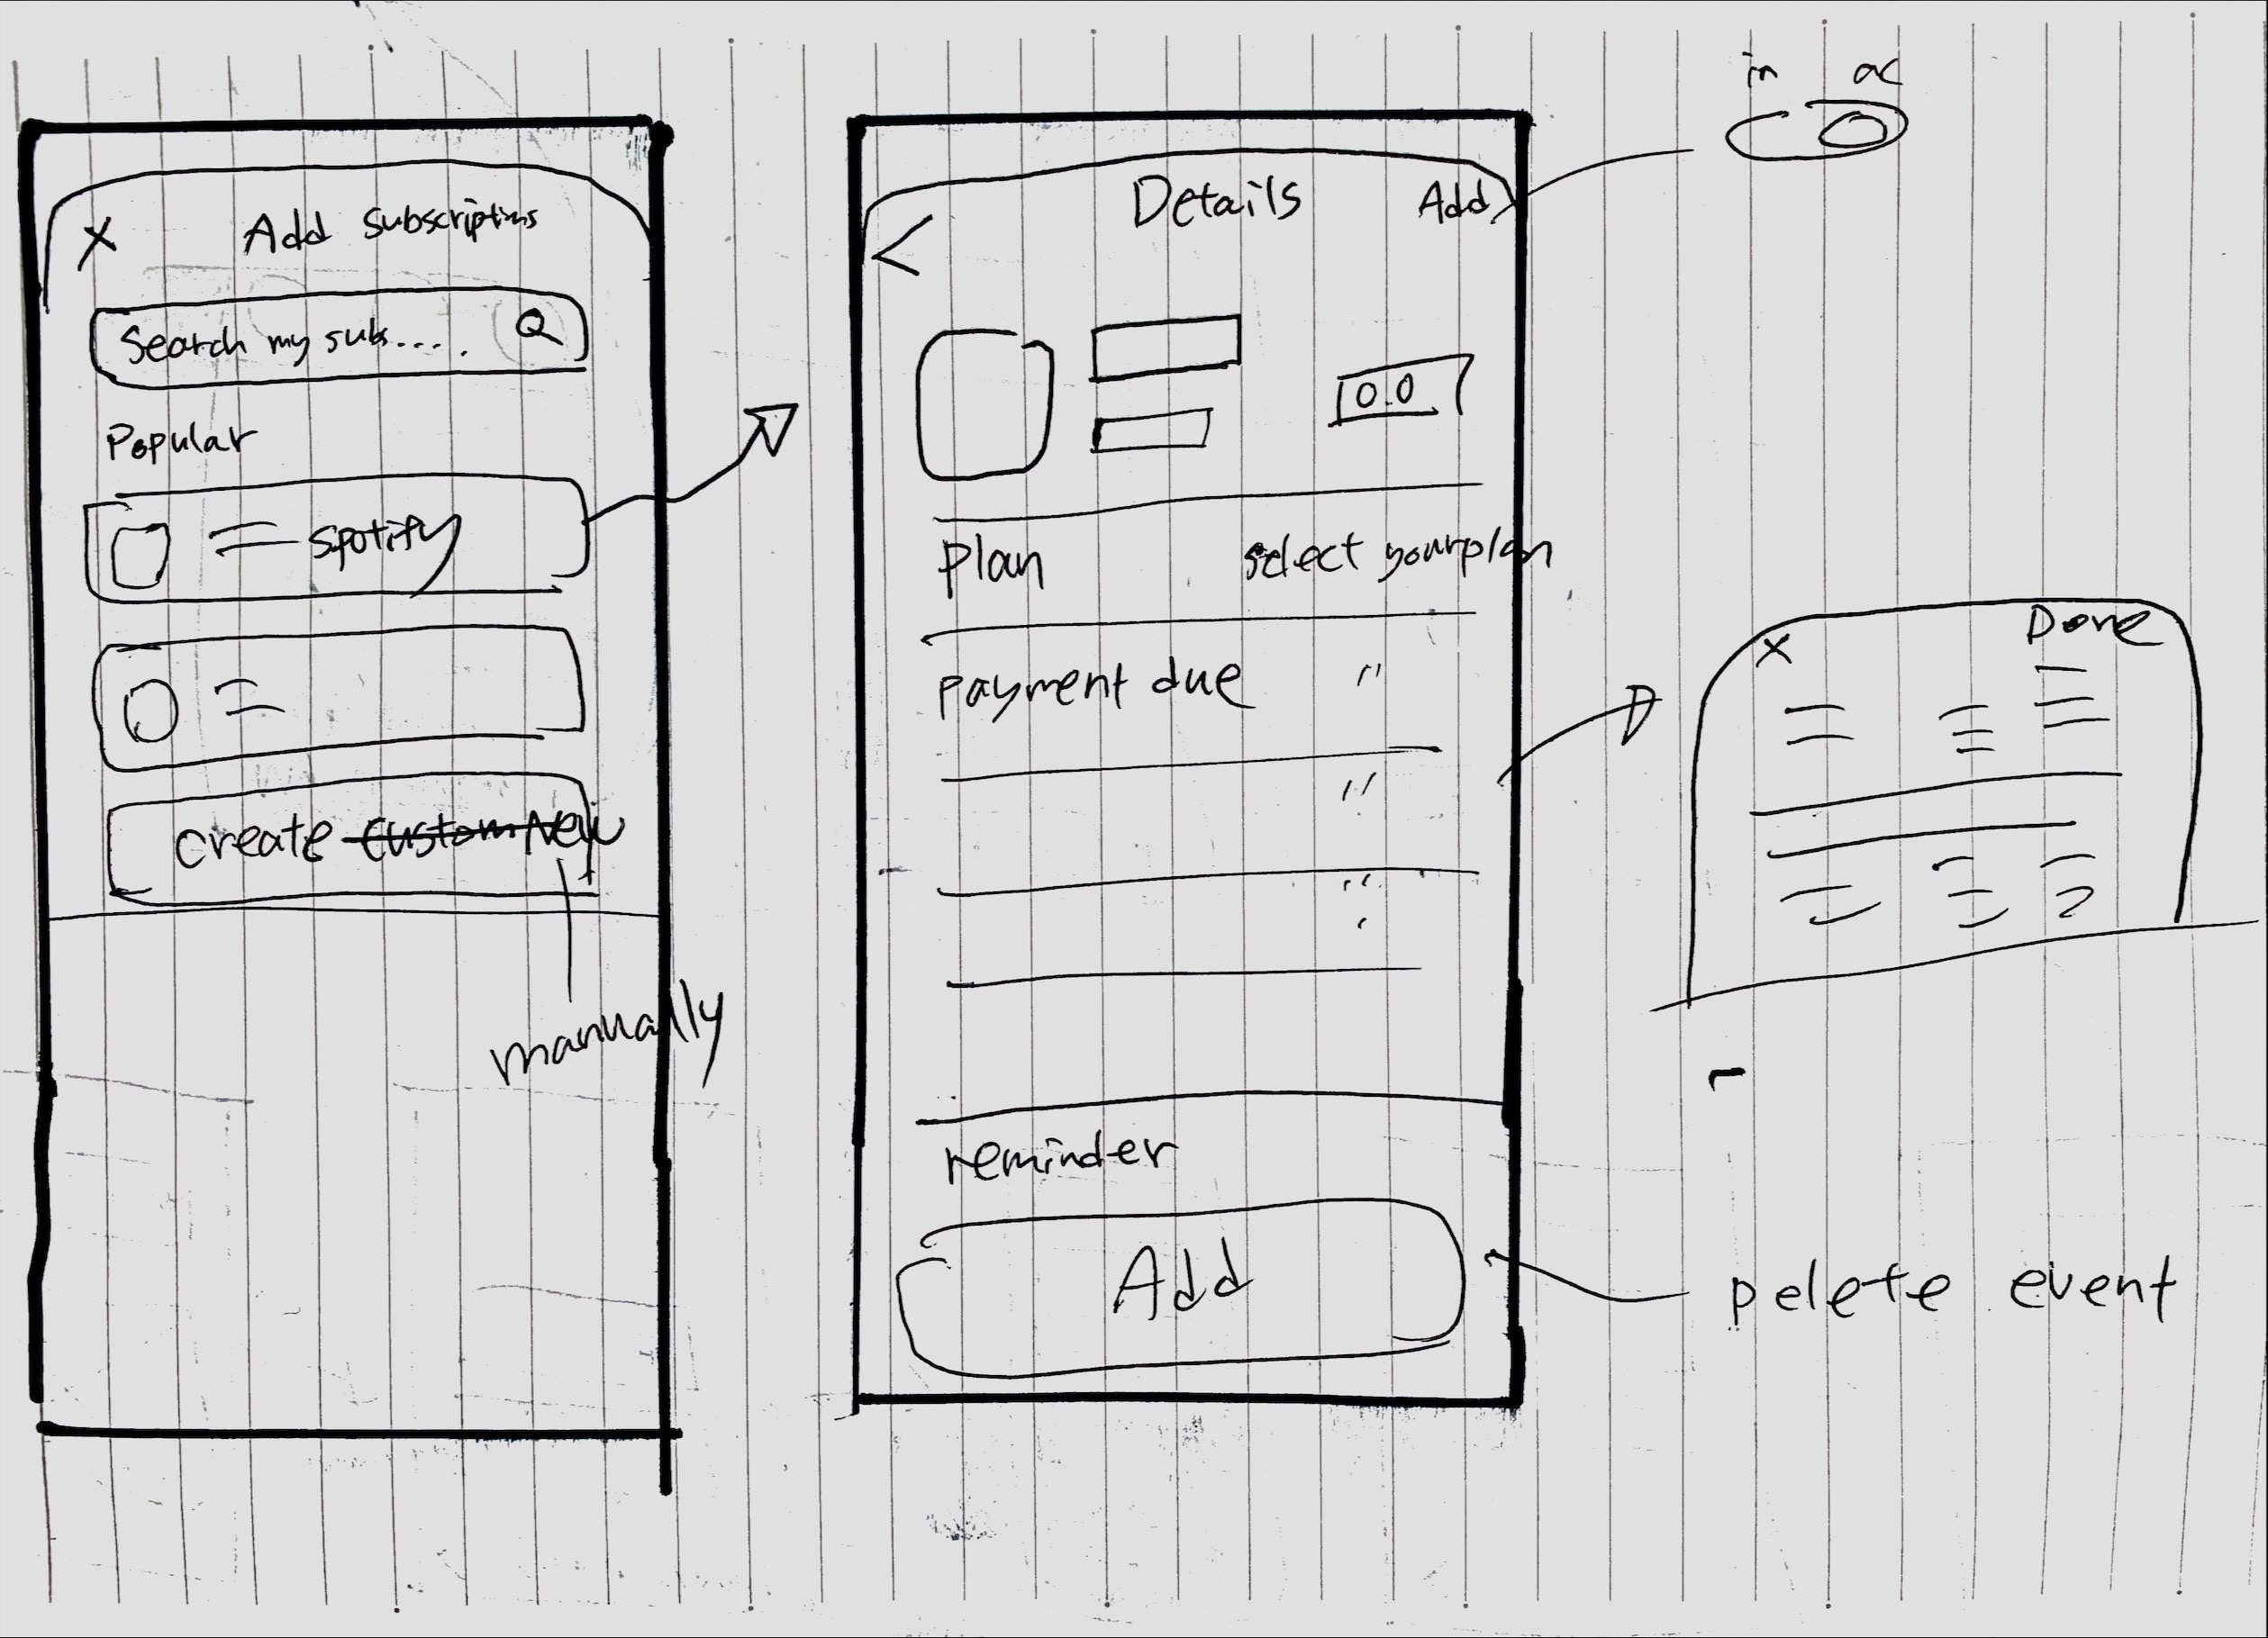 X Add Subscriptions
Search my subs....
Popular
Spotify
Create custom New
manually
< Details Add
0.0
Plan select your plan
payment due "
"
"
reminder
Add
in ac
X Done
Delete event